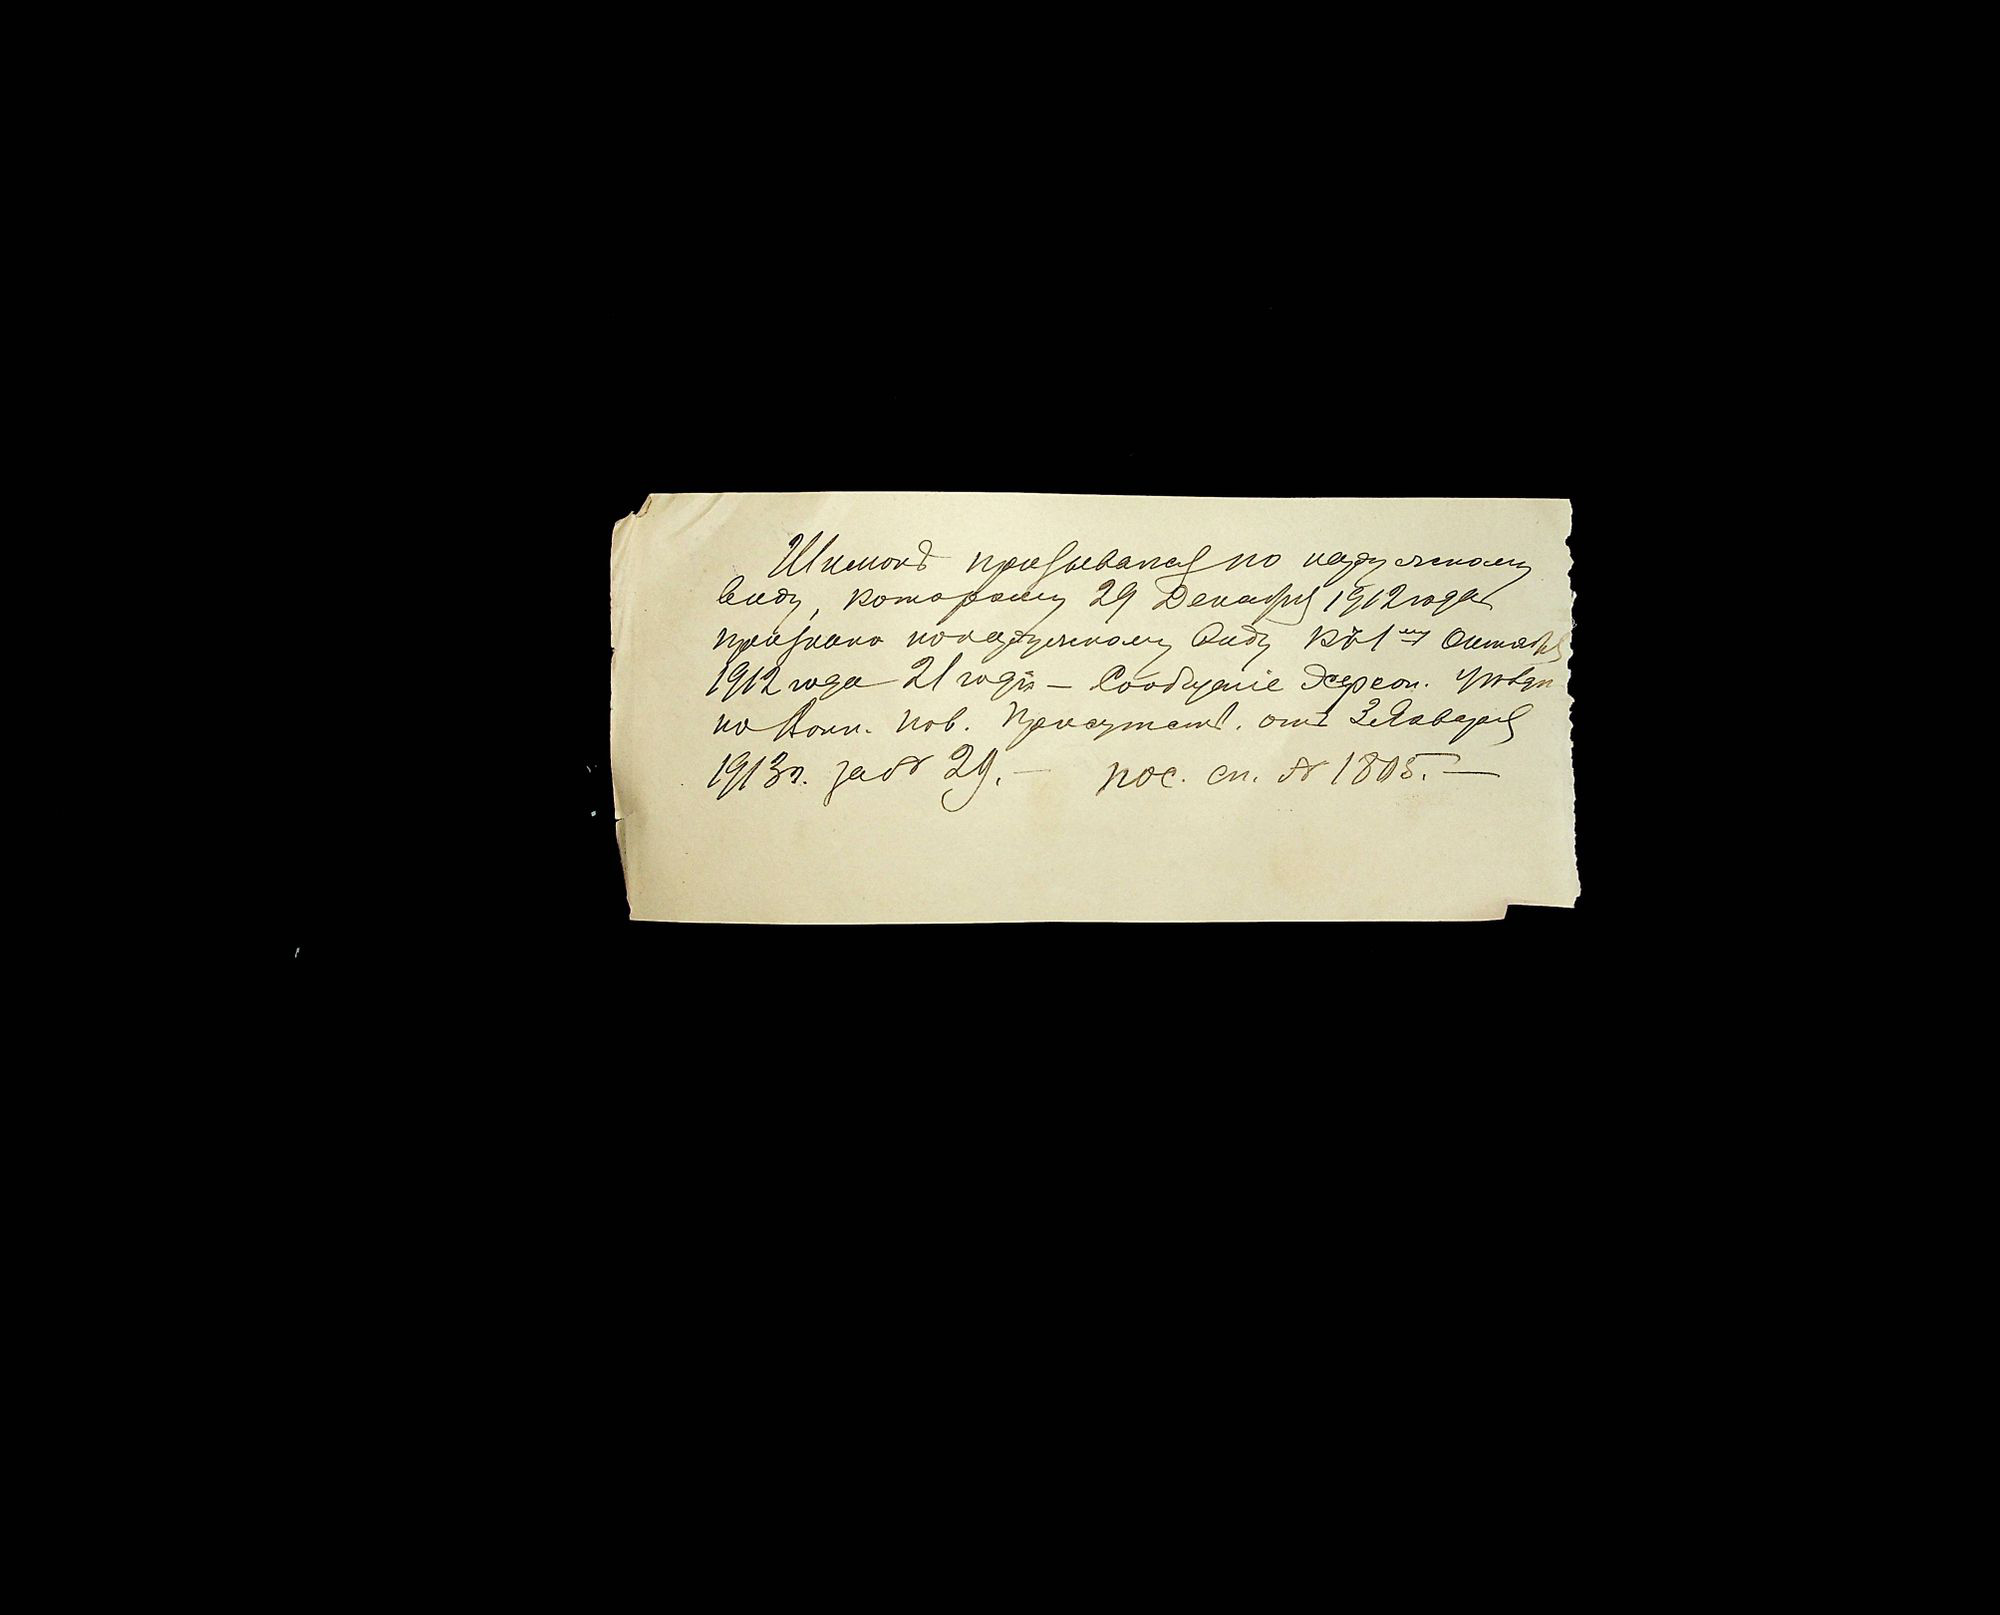 Шимонъ призывался по наружному
виду, которому 29 Декабря 1912 года
признано по наружному виду къ 1му Октября
1912 года 21 годъ — Сообщеніе Херсон. Уѣздн
по Воин. пов. Присутств. отъ 3 Января
1913 г. за № 29. — пос. сп. № 1805. —